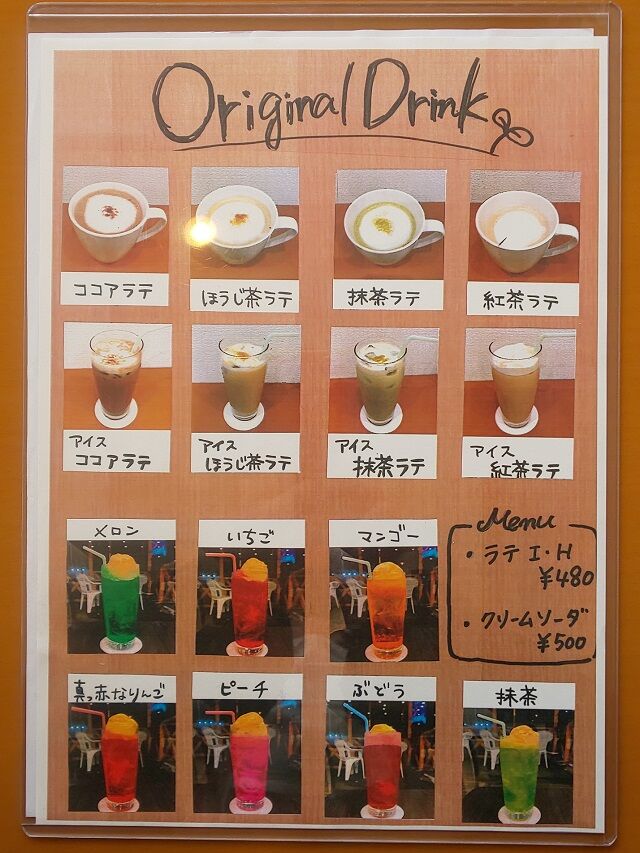 Original Drink
ココアラテ
ほうじ茶ラテ
抹茶ラテ
紅茶ラテ
アイス
ココアラテ
アイス
ほうじ茶ラテ
アイス
抹茶ラテ
アイス
紅茶ラテ
メロン
いちご
マンゴー
Menu
・ラテ I・H
¥480
・クリームソーダ
¥500
真っ赤なりんご
ピーチ
ぶどう
抹茶